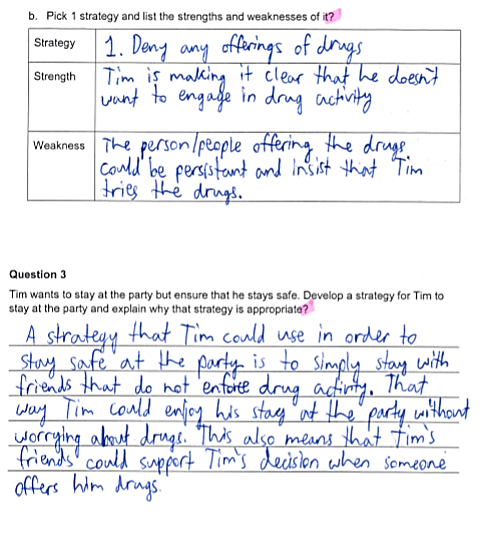 b. Pick 1 strategy and list the strengths and weaknesses of it?
Strategy
1. Deny any offerings of drugs
Strength
Tim is making it clear that he doesn't
want to engage in drug activity
Weakness
The person/people offering the drugs
could be persistant and insist that Tim
tries the drugs.
Question 3
Tim wants to stay at the party but ensure that he stays safe. Develop a strategy for Tim to
stay at the party and explain why that strategy is appropriate?
A strategy that Tim could use in order to
stay safe at the party is to simply stay with
friends that do not drug activity. That
way Tim could enjoy his stay at the party without
worrying about drugs. This also means that Tim's
friends could support Tim's decision when someone
offers him drugs.